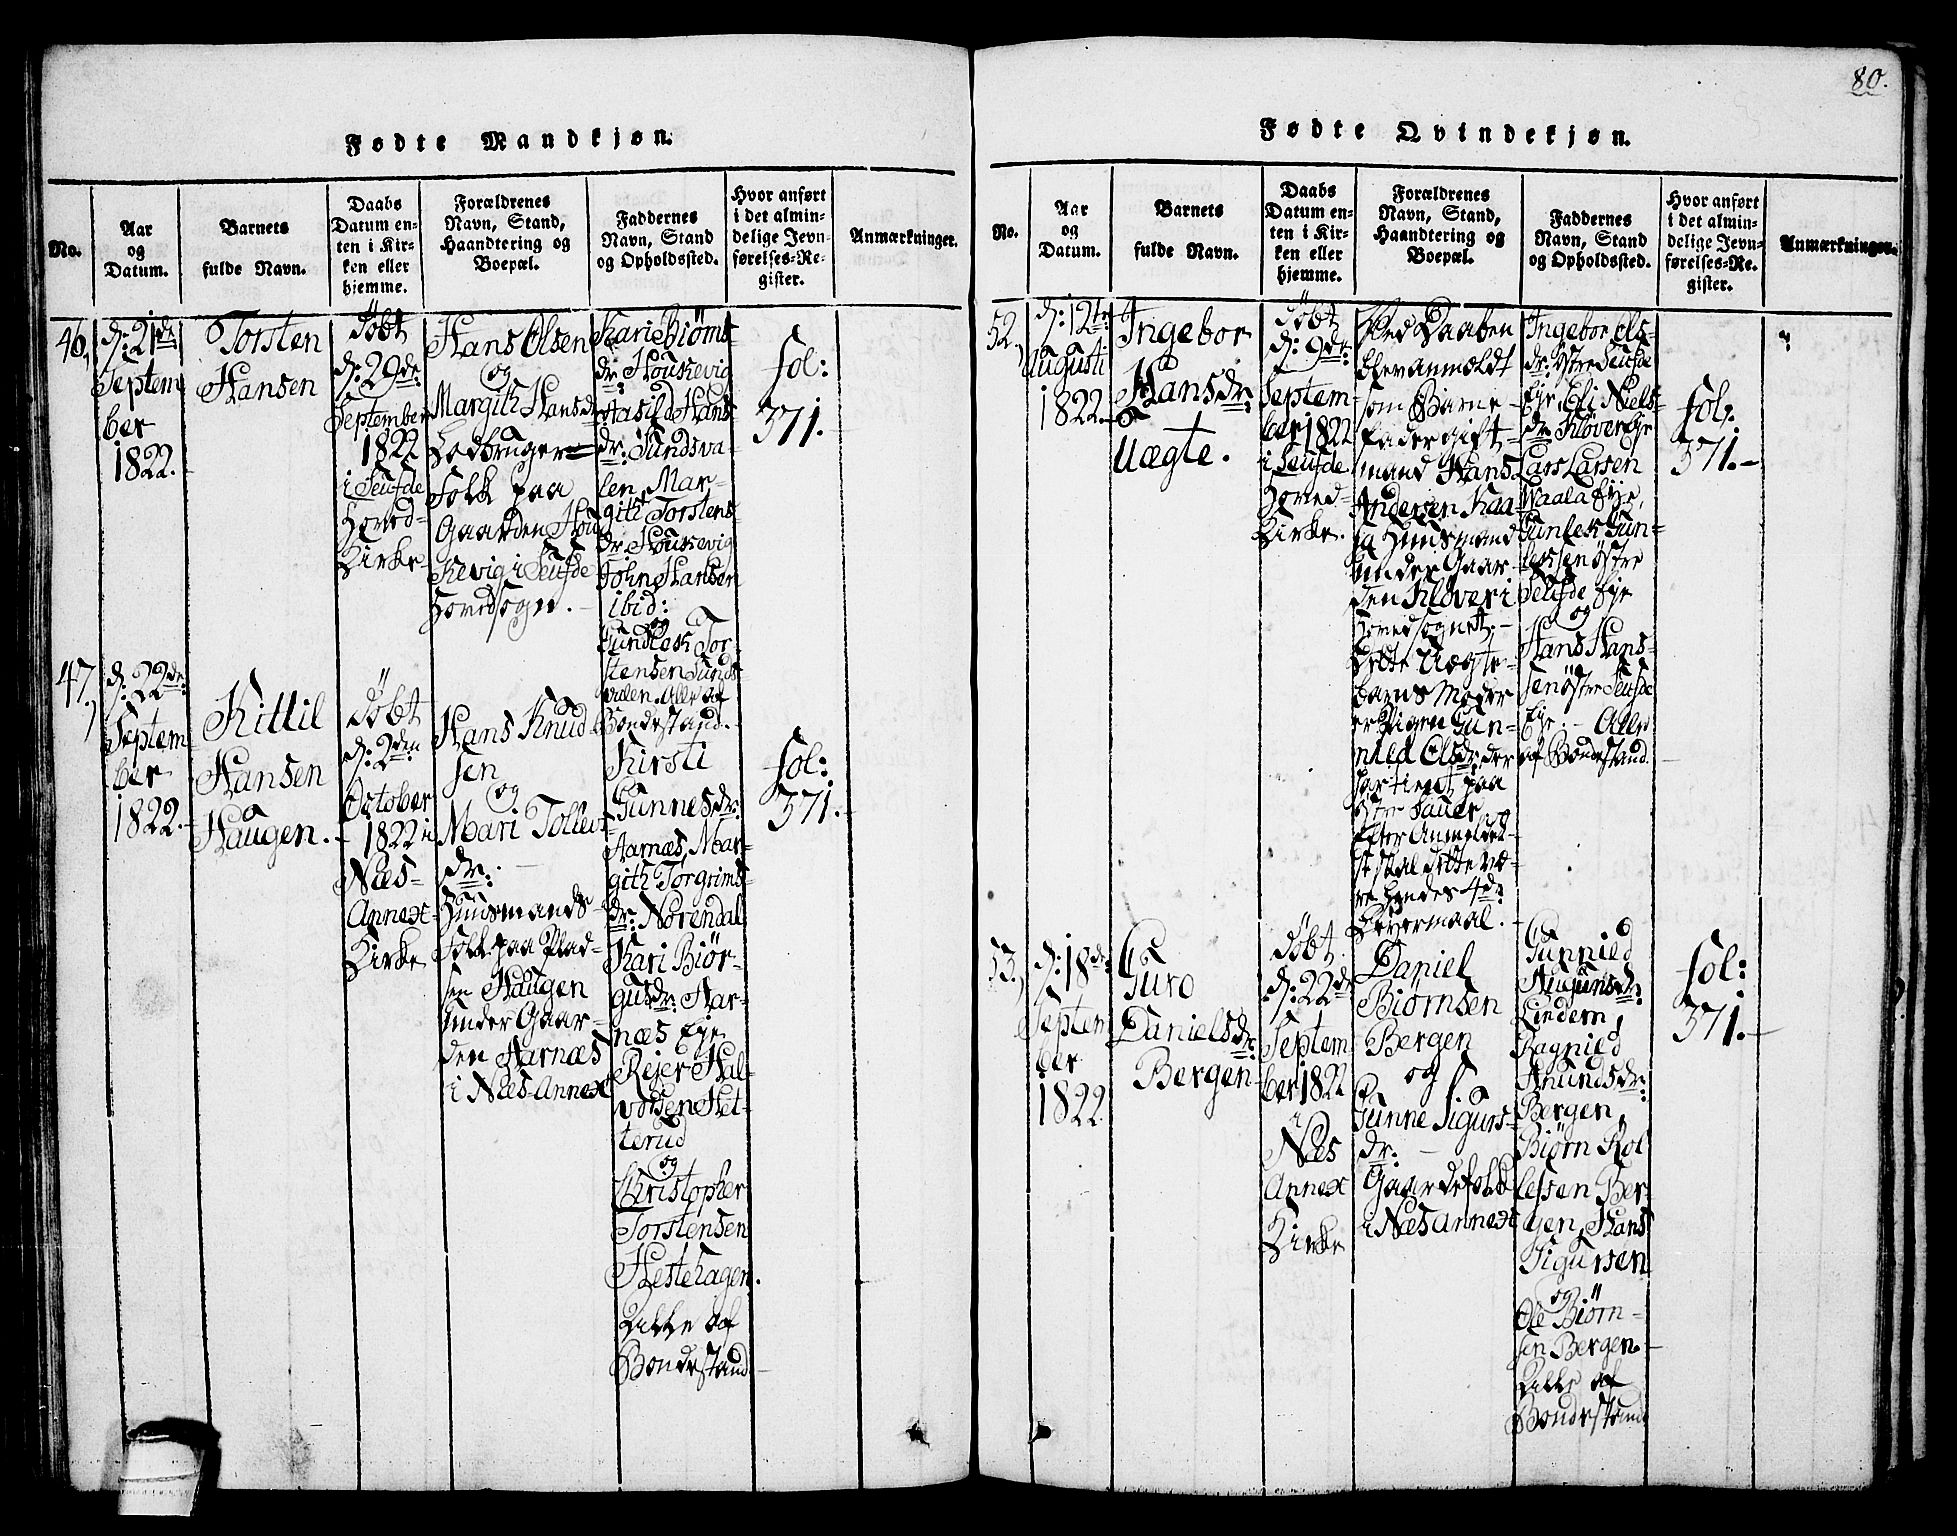 80.
Fødte Mandkjøn.
No.
Aar
og
Datum.
Barnets
fulde Navn.
Daabs
Datum en-
ten i Kir-
ken eller
hjemme.
Forældrenes
Navn, Stand,
Haandtering og
Boepæl.
Faddernes
Navn, Stand
og Opholdssted.
Hvor anført
i det almin-
delige Jevn-
førelses-Re-
gister.
Anmærkninger.
46,
d: 21de
Septem
ber
1822.
Torsten
Hansen
Døbt
d: 29de
September
1822
i Seufde
Hoved-
Kirke
Hans Olsen
og
Margith Hansdr
Folk paa
Gaarden Hou
kevig i Seufde
Hovedsogn.
Karie Biørns-
dr: Houkevig
Aasild Hans-
dr: Sundsva-
len, Mar-
gith Torstens-
dr. Houkevig
John Hansen
ibid:
og
Gundlek Tor-
stensen Sunds-
valen. Alle af
Bondestand.
fol:
371.
47,
d: 22de
Septem
ber
1822.
Kittil
Hansen
Haugen.
Døbt
d: 2den
October
1822 i
Næs-
Annex-
Kirke
Hans Knud-
sen
og
Mari Tollevs-
dr:
Huusmands-
Folk paa Plad-
sen Haugen
under Gaar-
den Aarnæs
i Næs-Annex
Kirsti
Gunnesdr:
Aarnæs, Mar-
gith Torgrims-
dr: Nørendal
Kari Biør-
gusdr: Aar-
næs Eje
Rejer Hal-
vorsen Het-
terud
og
Christopher
Torstensen
Hestehagen.
Alle af
Bondestand
fol:
371.
Fødte Qvindekjøn.
No.
Aar
og
Datum.
Barnets
fulde Navn.
Daabs
Datum en-
ten i Kir-
ken eller
hjemme.
Forældrenes
Navn, Stand,
Haandtering og
Boepæl.
Faddernes
Navn, Stand
og Opholdssted.
Hvor anført
i det almin-
delige Jevn-
førelses-Re-
gister.
Anmærkninger.
52,
d: 12te
Augusti
1822.
Ingebor
Hansdr:
Uægte.
Døbt
d: 9de
Septem-
ber 1822
i Seufde
Hoved-
Kirke.
Ved Daaben
blev anmældt
som Barne-
fader gift-
mand Hans
Andersen Kaa-
sa Huusmand
under Gaar-
den Kløver i
Hovedsognet.
Dette Uægte-
barns Moder
er Pigen Gun-
nild Olsdr: der
har tient paa
Efter Anmeldel-
se skal dette væ-
re hendes 4de
Leyermaal.
Ingebor Ols-
dr: østre Seufde
Eje, Eli Niels-
dr: Kløver Eje
Lars Larsen
Waala Eje,
Gunlek Gun-
leksen østre
Seufde Eje
og
Hans Hans-
sen østre Seufde
Eje. Alle
af Bondestand.
fol:
371.
53,
d: 18de
Septem
ber
1822
Guro
Danielsdr:
Bergen
Døbt
d: 22de
Septem
ber 1822
i
Næs
Annex
Kirke
Daniel
Biørnsen
Bergen
og
Gunne Sigurs-
dr:
Gaardefolk
i Næs Annex
Gunnild
Augunsdr:
Lindem,
Ragnild
Anundsdr:
Bergen,
Biørn Rol
lefsen Ber-
gen, Hans
Sigursen
og
Ole Biørn-
sen Bergen.
Alle af
Bondestand
fol:
371.